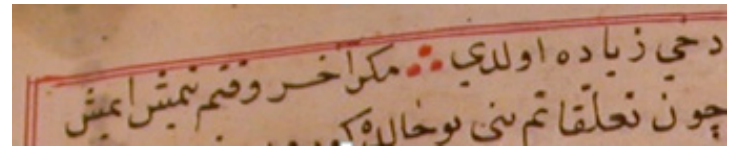 دخي زياده اولدي ∴ مكر آخر وقتم يتمش ايمش
چون تعلقاتم بنى بو حالده